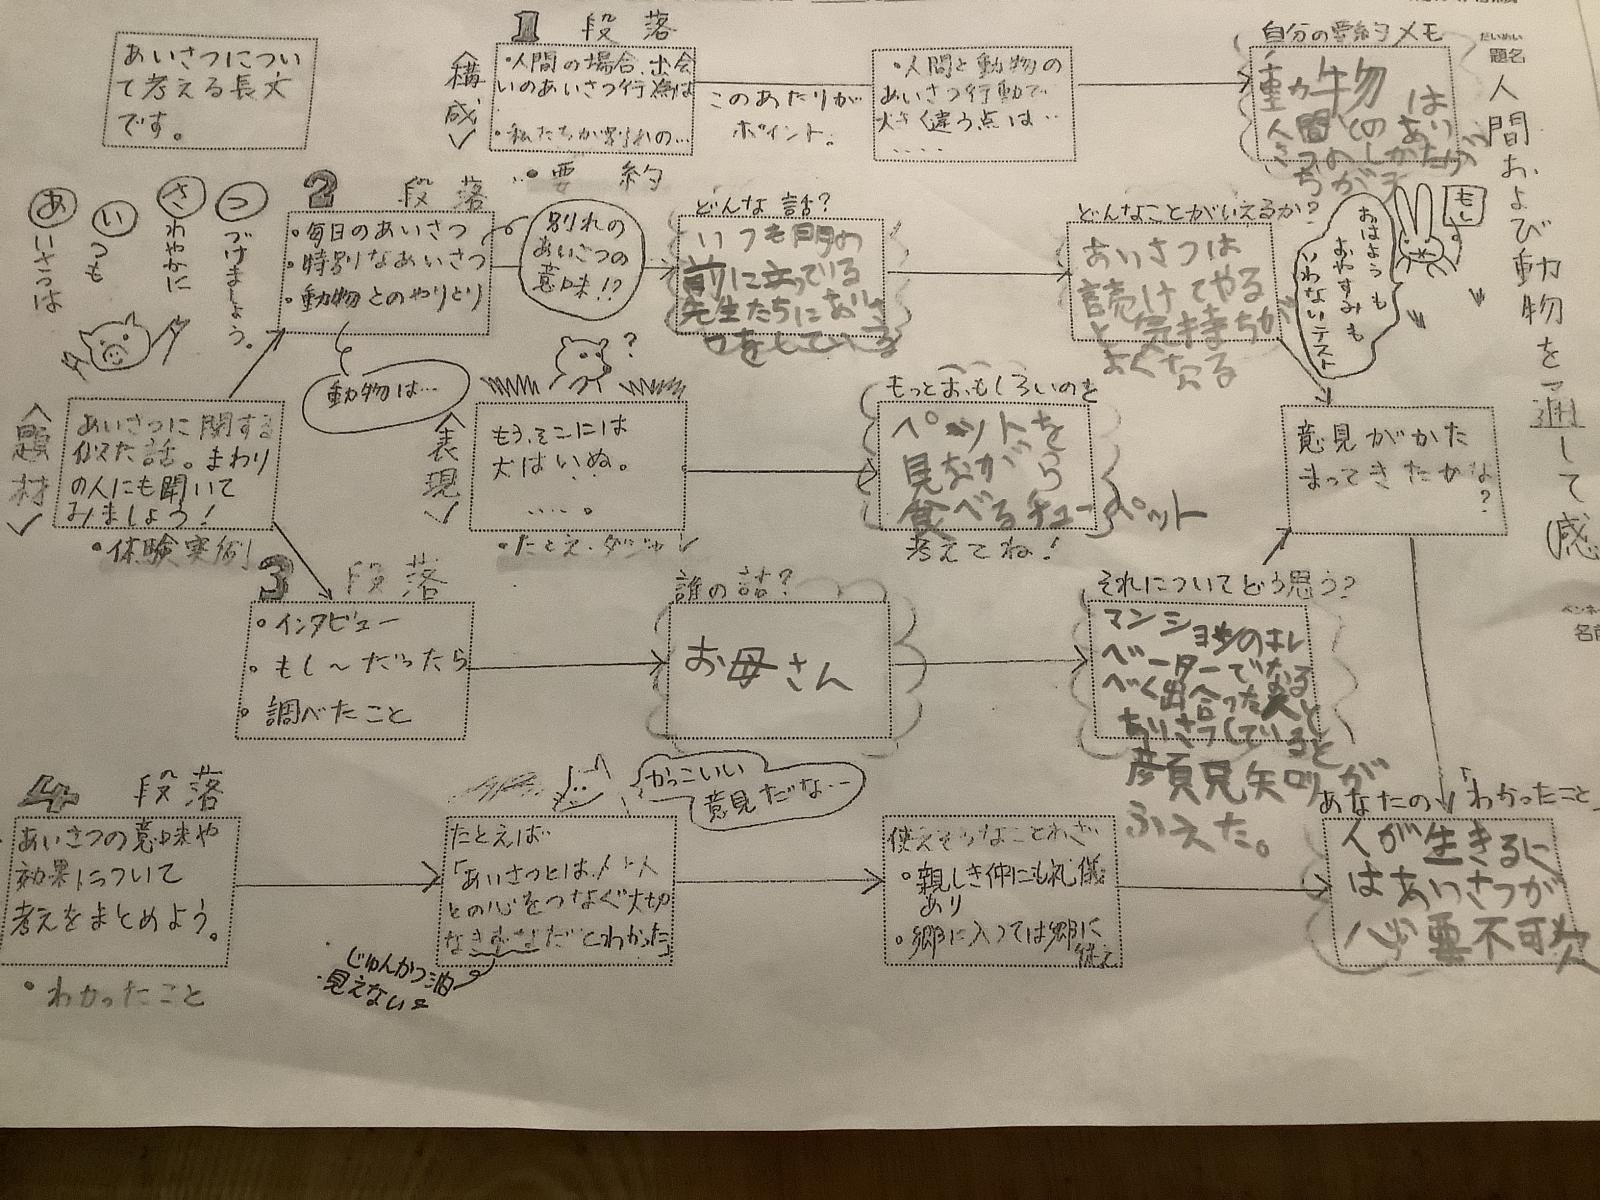 あいさつについ
て考える長文
です。
1 段落
〈構成〉
・人間の場合、出会
いのあいさつ行為は
・私たちが別れの…
このあたりが
ポイント。
・人間と動物の
あいさつ行動で
大きく違う点は…
‥‥
自分の要約メモ
動物は
人間の
…要約
だいめい
題名
人間および動物を通して感
あいさつは
いつも
さわやかに
つづけましょう。
2 段落
・毎日のあいさつ
・特別なあいさつ
・動物とのやりとり
別れの
あいさつの
意味!?
動物は…
どんな話?
いつも門の
前に立っている
先生たちにあいさ
つをしている
どんなことがいえるか?
あいさつは
続けてやる
と気持ちが
よくなる
おはようも
おやすみも
いわないテスト
もし
〈題材〉
あいさつに関する
似た話。まわり
の人にも聞いて
みましょう!
・体験実例
〈表現〉
?
もう、そこには
犬はいぬ。
‥‥。
・たとえ・ダジャレ
もっとおもしろいのを
ペットを
見ながら
食べるチューペット
考えてね!
意見がかた
まってきたかな?
3 段落
・インタビュー
・もし〜だったら
・調べたこと
誰の話?
お母さん
それについてどう思う?
マンションのエレ
ベーターでなる
べく出合った人と
あいさつしていると
顔見知りが
ふえた。
名前
4 段落
あいさつの意味や
効果について
考えをまとめよう。
・わかったこと
かっこいい
意見だな…
たとえば
「あいさつとは、人と人
との心をつなぐ大切
なきずなだとわかった」
じゅんかつ油
見えない
使えそうなことわざ
・親しき仲にも礼儀
あり
・郷に入っては郷に
従え
あなたの「わかったこと」
人が生きるに
はあいさつが
必要不可欠